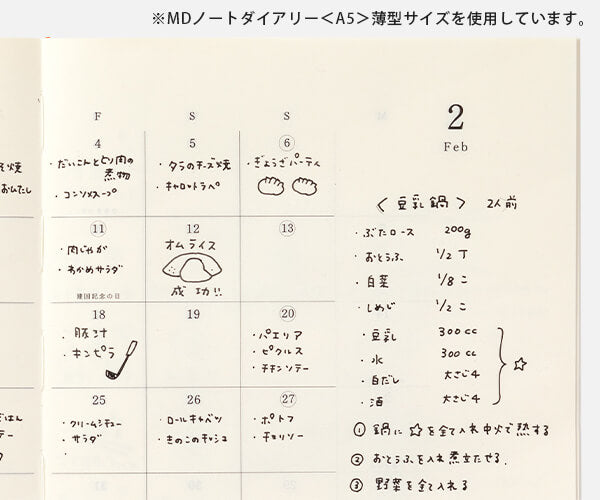 ※MDノートダイアリー＜A5＞薄型サイズを使用しています。
2
Feb
F S S
4 5 6
・だいこんととり肉の
煮物
・コンソメスープ
・タラのチーズ焼
・キャロットラペ
・ぎょうざパーティ
11 12 13
・肉じゃが
・わかめサラダ
建国記念の日
オムライス
成功!!
18 19 20
・豚汁
・キンピラ
・パエリア
・ピクルス
・チキンソテー
25 26 27
・クリームシチュー
・サラダ
・ロールキャベツ
・きのこのキッシュ
・ポトフ
・チョリソー
〈豆乳鍋〉 2人前
・ぶたロース 200g
・おとうふ 1/2丁
・白菜 1/8こ
・しめじ 1/2こ
・豆乳 300cc
・水 300cc
・白だし 大さじ4
・酒 大さじ4
☆
① 鍋に☆を全て入れ中火で熱する
② おとうふを入れ煮立たせる.
③ 野菜を全て入れる